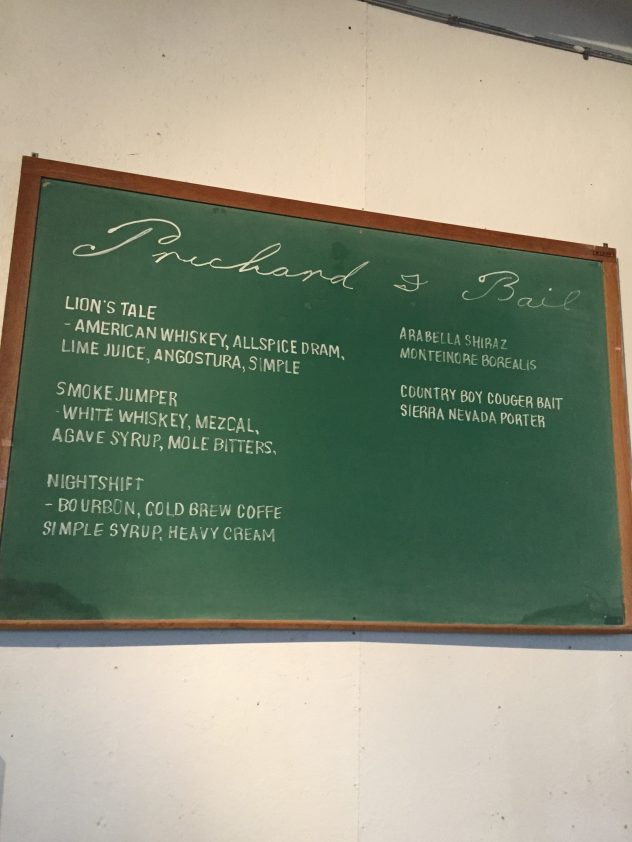 Prichard & Bail
LION'S TALE
- AMERICAN WHISKEY, ALLSPICE DRAM,
LIME JUICE, ANGOSTURA, SIMPLE
SMOKEJUMPER
- WHITE WHISKEY, MEZCAL,
AGAVE SYRUP, MOLE BITTERS,
NIGHTSHIFT
- BOURBON, COLD BREW COFFE
SIMPLE SYRUP, HEAVY CREAM
ARABELLA SHIRAZ
MONTEINORE BOREALIS
COUNTRY BOY COUGER BAIT
SIERRA NEVADA PORTER